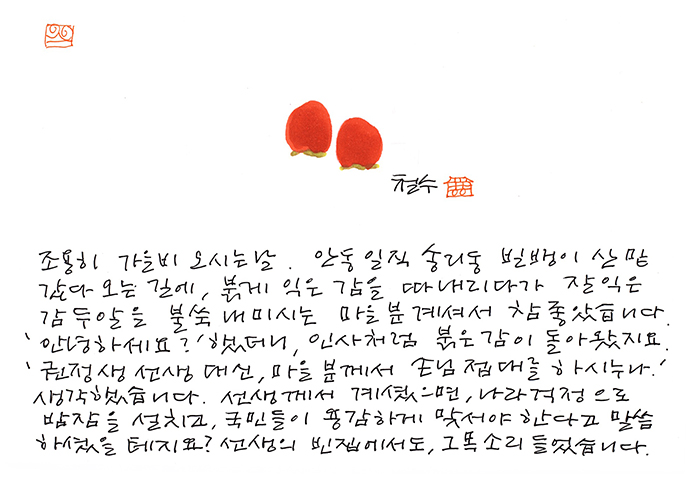 철수
조용히 가을비 오시는날. 안동 일직 송리동 빌뱅이 산 밑
갔다 오는 길에, 붉게 익은 감을 따 내리다가 잘 익은
감 두알을 불쑥 내미시는 마을분 계셔서 참 좋았습니다.
'안녕하세요?' 했더니, 인사처럼 붉은 감이 돌아왔지요.
'권정생 선생 대신, 마을 분께서 손님 접대를 하시누나.'
생각했습니다. 선생께서 계셨으면, 나라걱정으로
밤잠을 설치고, 국민들이 용감하게 맞서야 한다고 말씀
하셨을 테지요? 선생의 빈집에서도, 그 목소리 들었습니다.